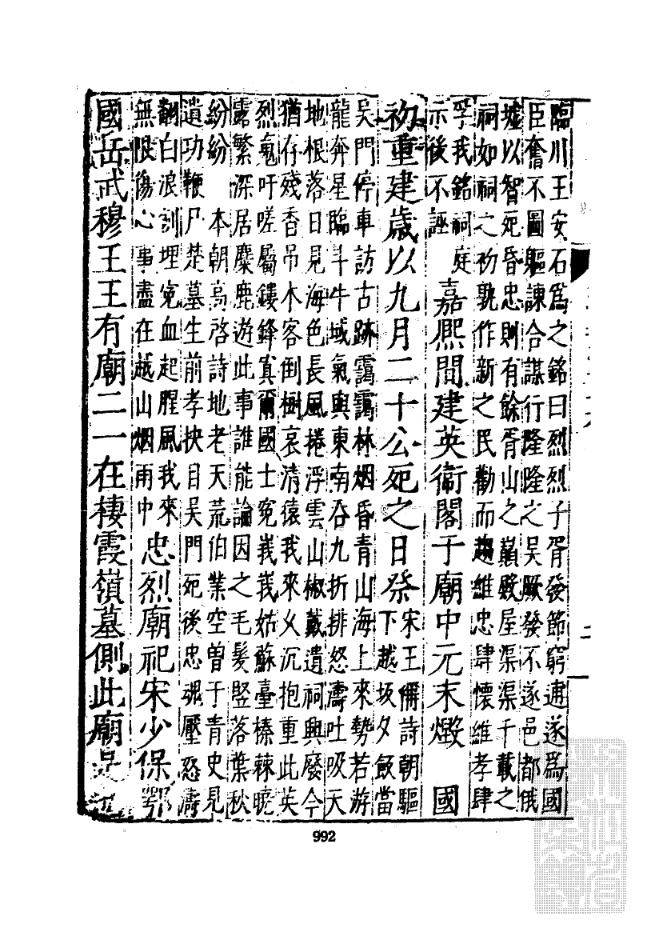 臨川王安石爲之銘曰烈烈子胥發節窮逋遂爲國
臣奮不圖軀諫合謀行隆隆之吳厥發不遂邑都俄
墟以智死昏忠則有餘胥山之巔殿屋渠渠千載之
祠如祠之初孰作新之民勸而趨維忠肆懷維孝肆
孚我銘祠庭
示後不誣
嘉熈間建英衛閣于廟中元末燬 國
初重建歲以九月二十公死之日祭
宋王僃詩朝驅
下越坂夕飯當
吳門停車訪古跡靄靄林烟昏青山海上來勢若游
龍奔星臨斗牛域氣與東南吞九折排怒濤吐吸天
地根落日見海色長風捲浮雲山椒戴遺祠興廢今
猶存殘香吊木客倒樹哀清猿我來乆沉抱重此英
烈䰟吁嗟屬鏤鋒寘爾國士冤峩峩姑蘇臺榛棘曉
露繁深居麋鹿遊此事誰能論因之毛髮竪落葉秋
紛紛 本朝高啓詩地老天荒伯業空曾于青史見
遺功鞭尸楚墓生前孝抉目吳門死後忠魂壓怒濤
翻白浪劍埋寃血起腥風我來
無限傷心事盡在越山烟雨中
忠烈廟祀宋少保鄂
國岳武穆王王有廟二一在棲霞嶺墓側此廟是
992